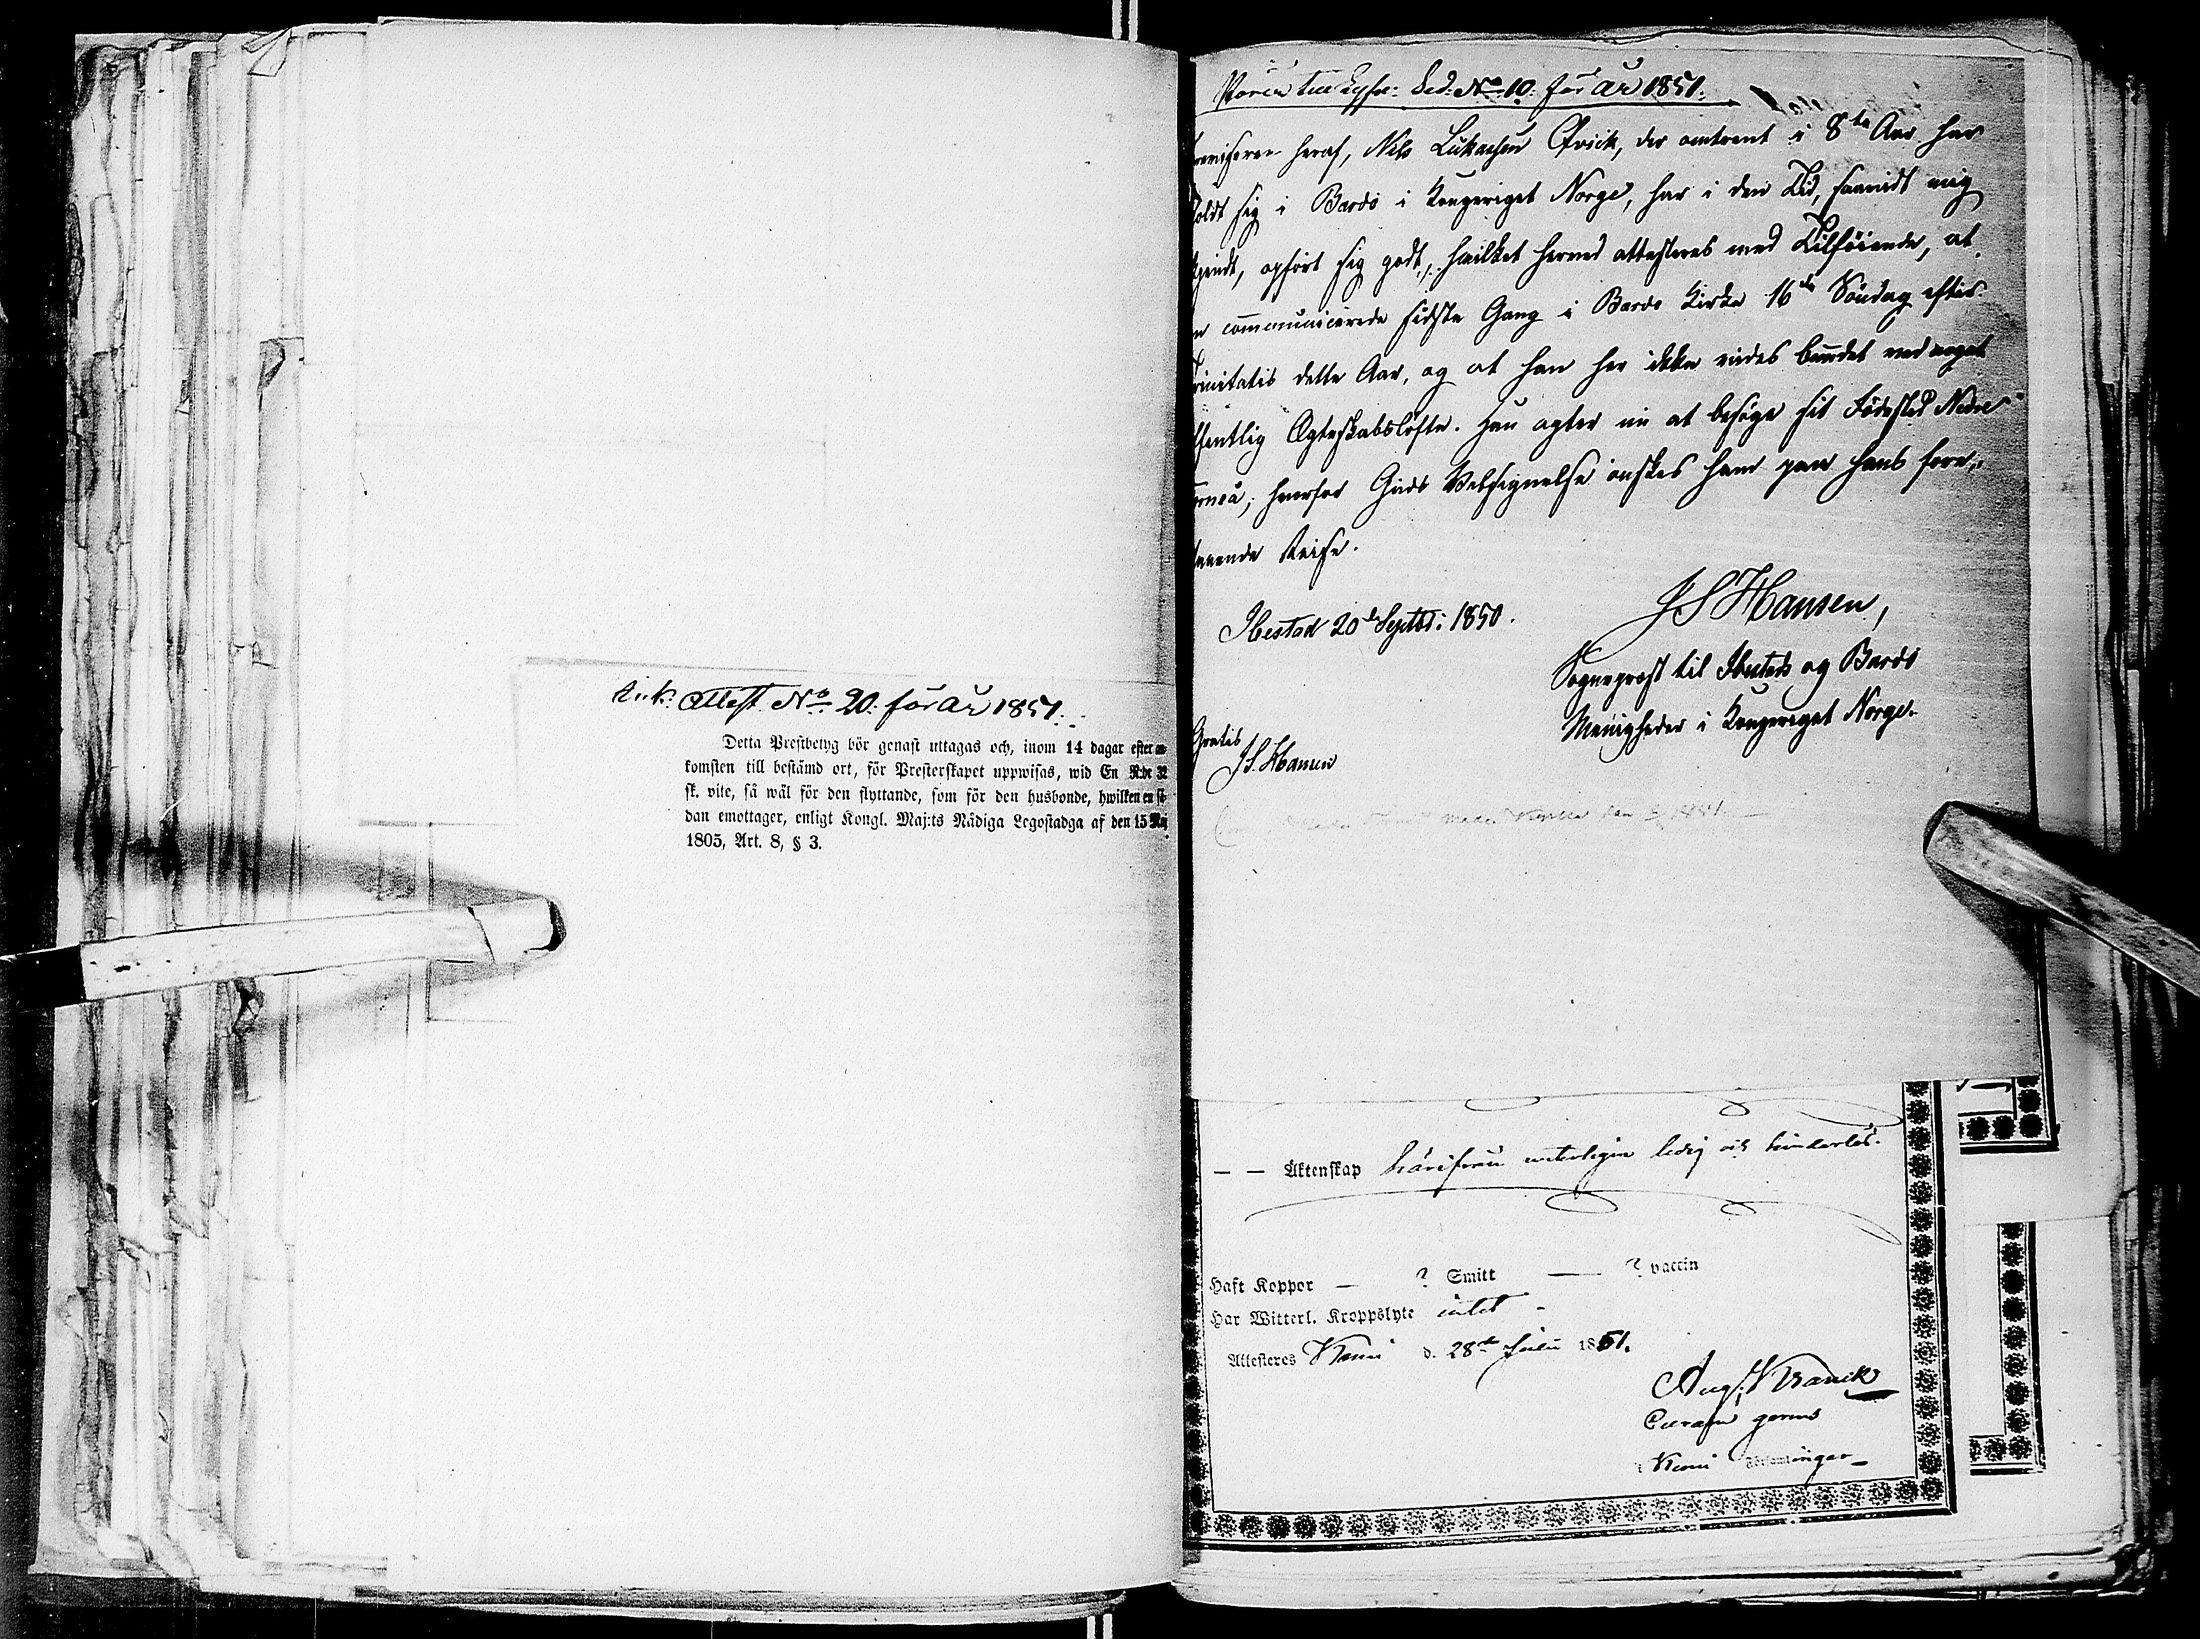 Attest No 20. för år 1851.
Detta Prestbetyg bör genast uttagas och, inom 14 dagar efter an-
komsten till bestämd ort, för Presterskapet uppwisas, wid En R:dr 32
sk. vite, så wäl för den flyttande, som för den husbonde, hwilken en så-
dan emottager, enligt Kongl. Maj:ts Nådiga Legostadga af den 15 Maj
1805, Art. 8, § 3.
No 10. för år 1851.
heraf, Nils Lukasen Qvick, der omtrent i 8de Aar har
oldt sig i Bardo i Kongeriget Norge, har i den Tid, saavidt mig
opført sig godt, hvilket herved attesteres med Tilføiende, at
communicerede sidste Gang i Bardo Kirke 16de Søndag efter
rinitatis dette Aar, og at han her ikke vides bundet ved noget
ffentlig Ægteskabsløfte. Han agter nu at besøge sit Fødested Nedre
rneå, hvorfor Guds Velsignelse ønskes ham paa hans fore-
aaende Reise.
Ibestad 20de Septbr: 1850.
J S Hansen,
Sogneprest til Ibestads og Bardo
Menigheder i Kongeriget Norge.
Gratis
J. S. Hansen
— — Äktenskap härifrån ledig och hinderlös.
Haft Koppor — ? Smitt — ? vaccin
Har Witterl. Kroppslyte intet -
Attesteres Kemi d. 28de Julii 1851.
Aug. Kranck
gerens
Kemi Församlingar